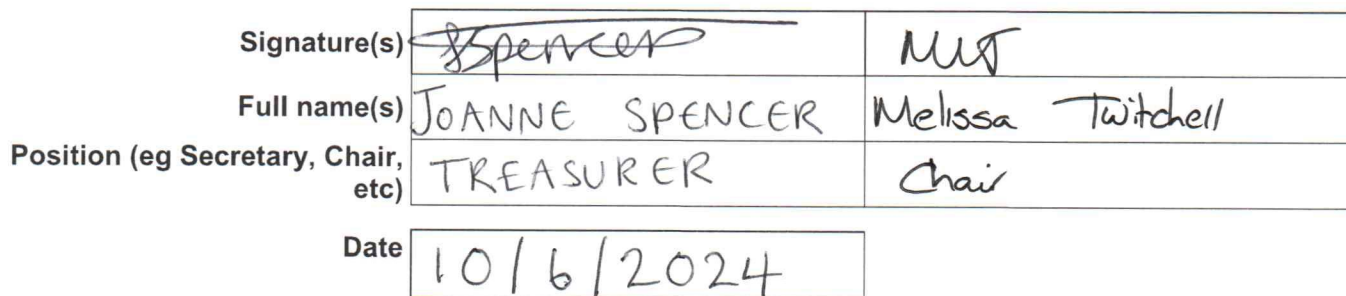 Signature(s) JSpencer
Full name(s) JOANNE SPENCER Melissa Twitchell
Position (eg Secretary, Chair, etc) TREASURER Chair
Date 10/6/2024